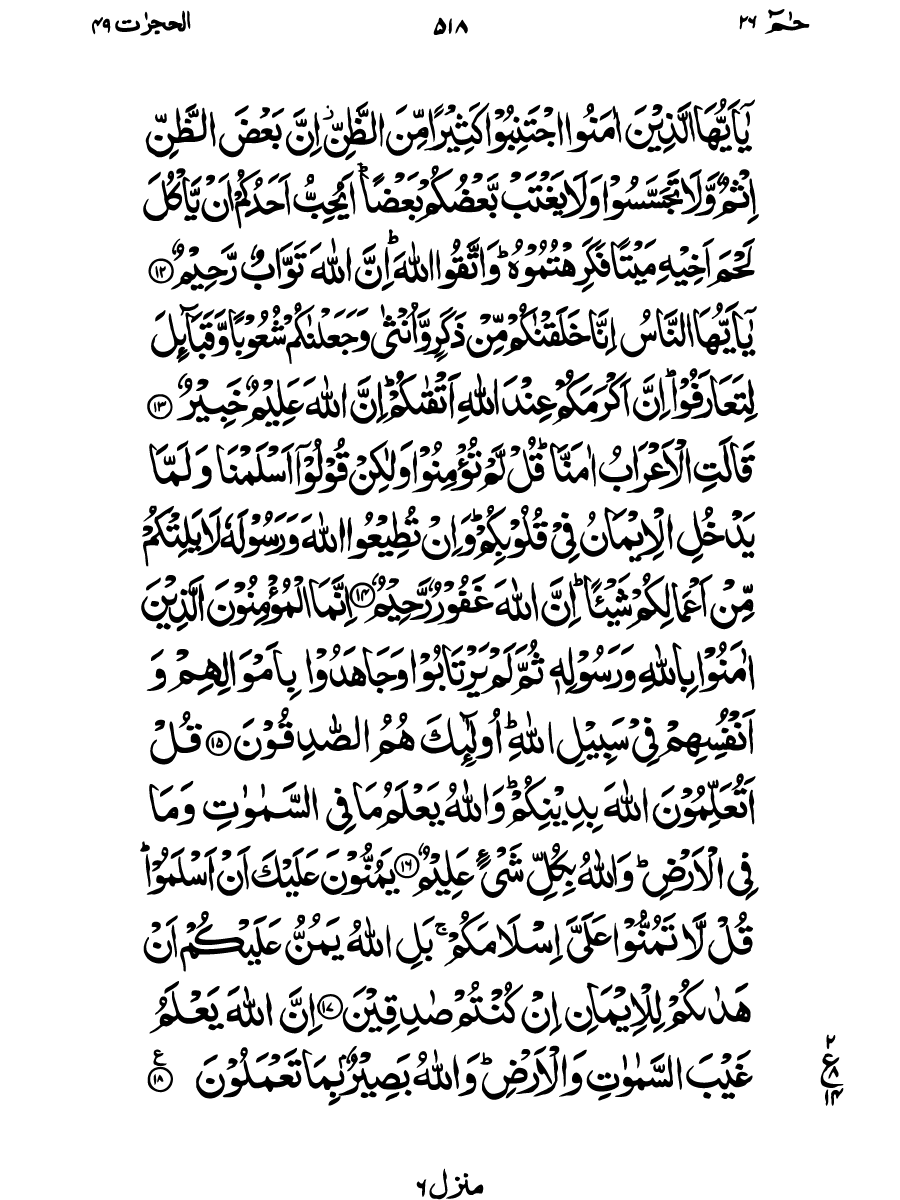 حٰمٓ ٢٦ ٥١٨ الحجرٰت ٤٩
يٰۤاَيُّهَا الَّذِيْنَ اٰمَنُوا اجْتَنِبُوْا كَثِيْرًا مِّنَ الظَّنِّ ۫ اِنَّ بَعْضَ الظَّنِّ
اِثْمٌ وَّ لَا تَجَسَّسُوْا وَ لَا يَغْتَبْ بَّعْضُكُمْ بَعْضًا ؕ اَيُحِبُّ اَحَدُكُمْ اَنْ يَّاْكُلَ
لَحْمَ اَخِيْهِ مَيْتًا فَكَرِهْتُمُوْهُ ؕ وَ اتَّقُوا اللّٰهَ ؕ اِنَّ اللّٰهَ تَوَّابٌ رَّحِيْمٌ ﴿١٢﴾
يٰۤاَيُّهَا النَّاسُ اِنَّا خَلَقْنٰكُمْ مِّنْ ذَكَرٍ وَّ اُنْثٰى وَ جَعَلْنٰكُمْ شُعُوْبًا وَّ قَبَآىِٕلَ
لِتَعَارَفُوْا ؕ اِنَّ اَكْرَمَكُمْ عِنْدَ اللّٰهِ اَتْقٰىكُمْ ؕ اِنَّ اللّٰهَ عَلِيْمٌ خَبِيْرٌ ﴿١٣﴾
قَالَتِ الْاَعْرَابُ اٰمَنَّا ؕ قُلْ لَّمْ تُؤْمِنُوْا وَ لٰكِنْ قُوْلُوْۤا اَسْلَمْنَا وَ لَمَّا
يَدْخُلِ الْاِيْمَانُ فِيْ قُلُوْبِكُمْ ؕ وَ اِنْ تُطِيْعُوا اللّٰهَ وَ رَسُوْلَهٗ لَا يَلِتْكُمْ
مِّنْ اَعْمَالِكُمْ شَيْـًٔا ؕ اِنَّ اللّٰهَ غَفُوْرٌ رَّحِيْمٌ ﴿١٤﴾ اِنَّمَا الْمُؤْمِنُوْنَ الَّذِيْنَ
اٰمَنُوْا بِاللّٰهِ وَ رَسُوْلِهٖ ثُمَّ لَمْ يَرْتَابُوْا وَ جَاهَدُوْا بِاَمْوَالِهِمْ وَ
اَنْفُسِهِمْ فِيْ سَبِيْلِ اللّٰهِ ؕ اُولٰٓىِٕكَ هُمُ الصّٰدِقُوْنَ ﴿١٥﴾ قُلْ
اَتُعَلِّمُوْنَ اللّٰهَ بِدِيْنِكُمْ ؕ وَ اللّٰهُ يَعْلَمُ مَا فِي السَّمٰوٰتِ وَ مَا
فِي الْاَرْضِ ؕ وَ اللّٰهُ بِكُلِّ شَيْءٍ عَلِيْمٌ ﴿١٦﴾ يَمُنُّوْنَ عَلَيْكَ اَنْ اَسْلَمُوْا ؕ
قُلْ لَّا تَمُنُّوْا عَلَيَّ اِسْلَامَكُمْ ۚ بَلِ اللّٰهُ يَمُنُّ عَلَيْكُمْ اَنْ
هَدٰىكُمْ لِلْاِيْمَانِ اِنْ كُنْتُمْ صٰدِقِيْنَ ﴿١٧﴾ اِنَّ اللّٰهَ يَعْلَمُ
غَيْبَ السَّمٰوٰتِ وَ الْاَرْضِ ؕ وَ اللّٰهُ بَصِيْرٌۢ بِمَا تَعْمَلُوْنَ ﴿١٨﴾ ع
٢
ع ٨
١٤
منزل ٦